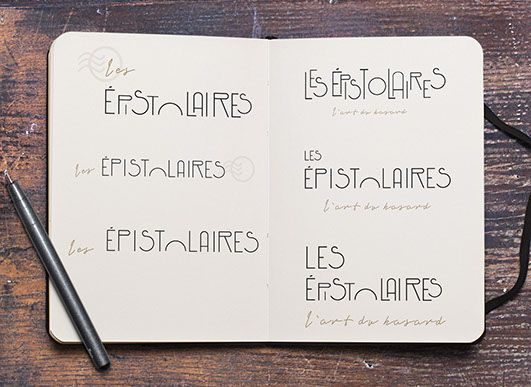 les
ÉPISTOLAIRES
les ÉPISTOLAIRES
les ÉPISTOLAIRES
LES ÉPISTOLAIRES
l'art du hasard
LES
ÉPISTOLAIRES
l'art du hasard
LES
ÉPISTOLAIRES
l'art du hasard